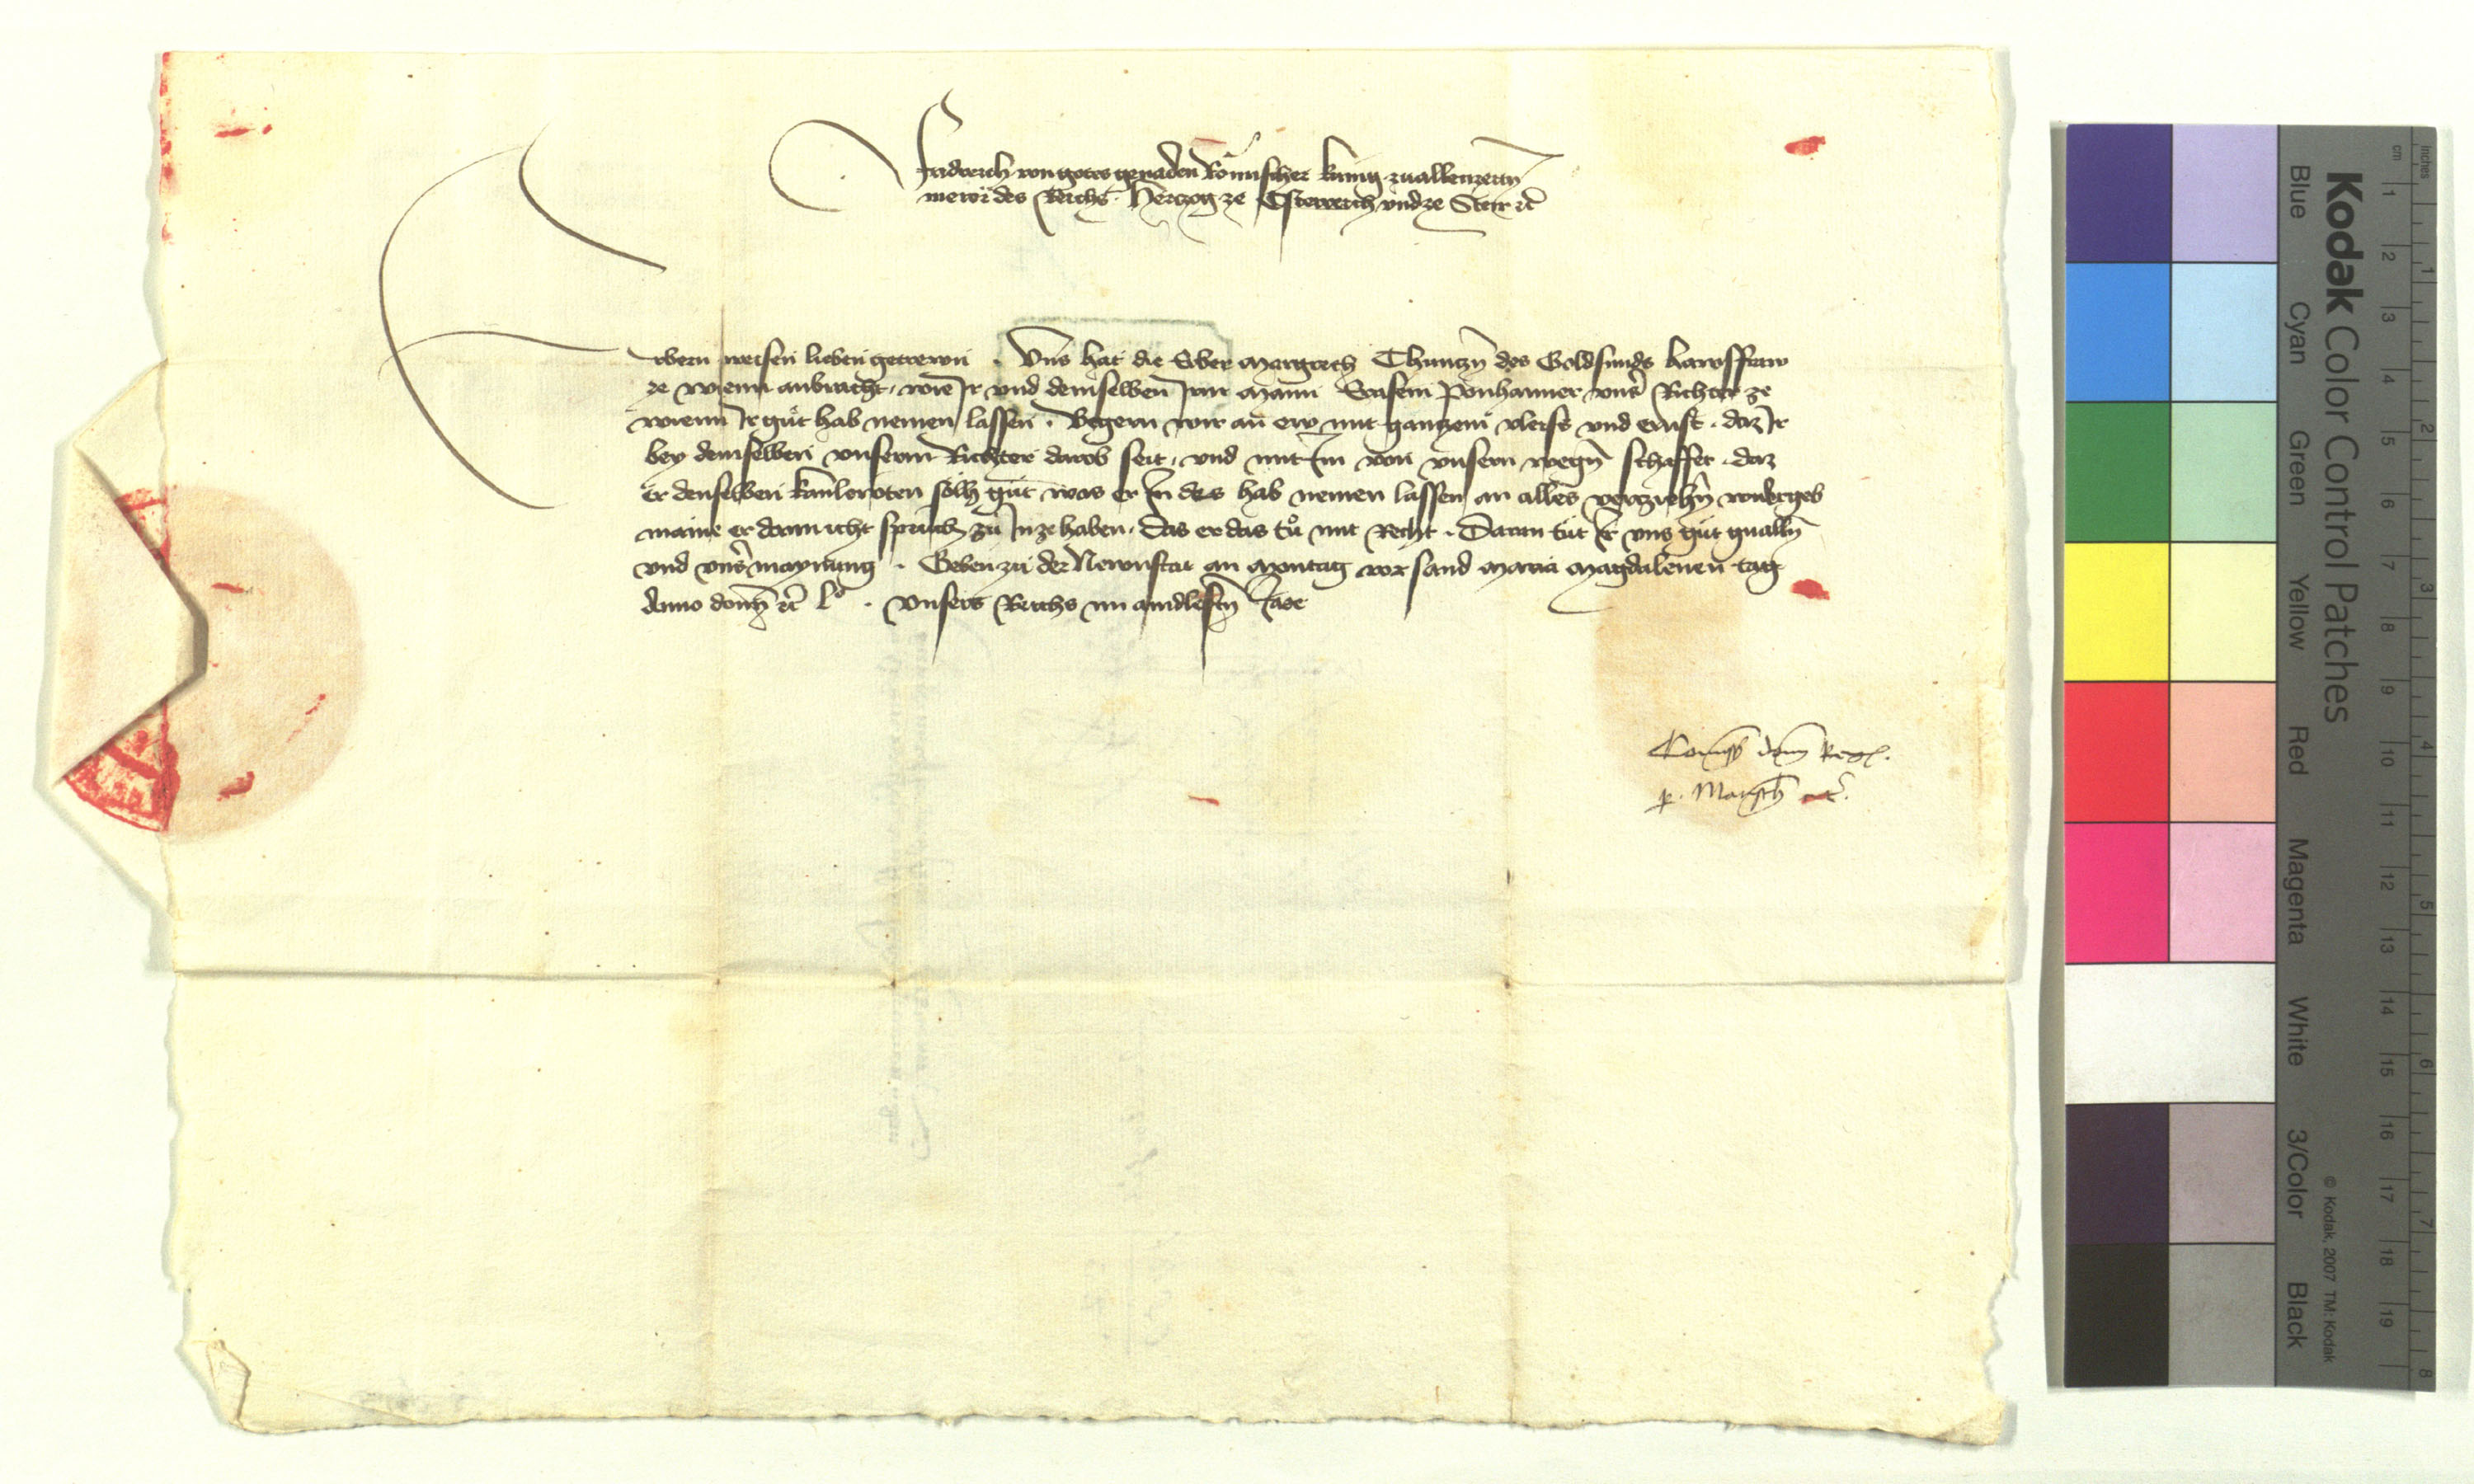 Friderich von gotes gnaden Römischer kunig zuallenczeitn
merer des Reichs Herczog ze Österreich und ze Steir etc̃
Erbern weisen lieben getrewn . Uns hat die Erber Margreth Chunczñ des Goldsmids hawsfraw
ze wienn anbracht, wie Ir und demselben Irm Mann Erasem Ponhaimer unser̃ Richter ze
wienn Ir gůt hab nemen lassen . Begern wir an ew mit ganczem vleiss und ernst . daz Ir
bey demselben unserm Richter darob seit, und mit Im von unsern wegñ schaffet . daz
er denselben kanleroten solh gůt was er In des hab nemen lassen an alles verziehñ widergeb
maine er dann icht spruch zu In ze haben, das er das tů mit Recht . Daran tůt Ir uns gůt geuallñ
und unser̃ maynung . Geben zu der Newnstat an Montag vor sand Maria Magdalenen tag
Anno domĩ etc̃ lᵒ . Unsers Reichs im aindleftñ Jare
Com̃p dom̃ Reg̃.
p . Marsch etc̃.
Kodak Color Control Patches
Blue Cyan Green Yellow Red Magenta White 3/Color Black
cm 1 2 3 4 5 6 7 8 9 10 11 12 13 14 15 16 17 18 19
inches 1 2 3 4 5 6 7 8
© Kodak, 2007 TM: Kodak